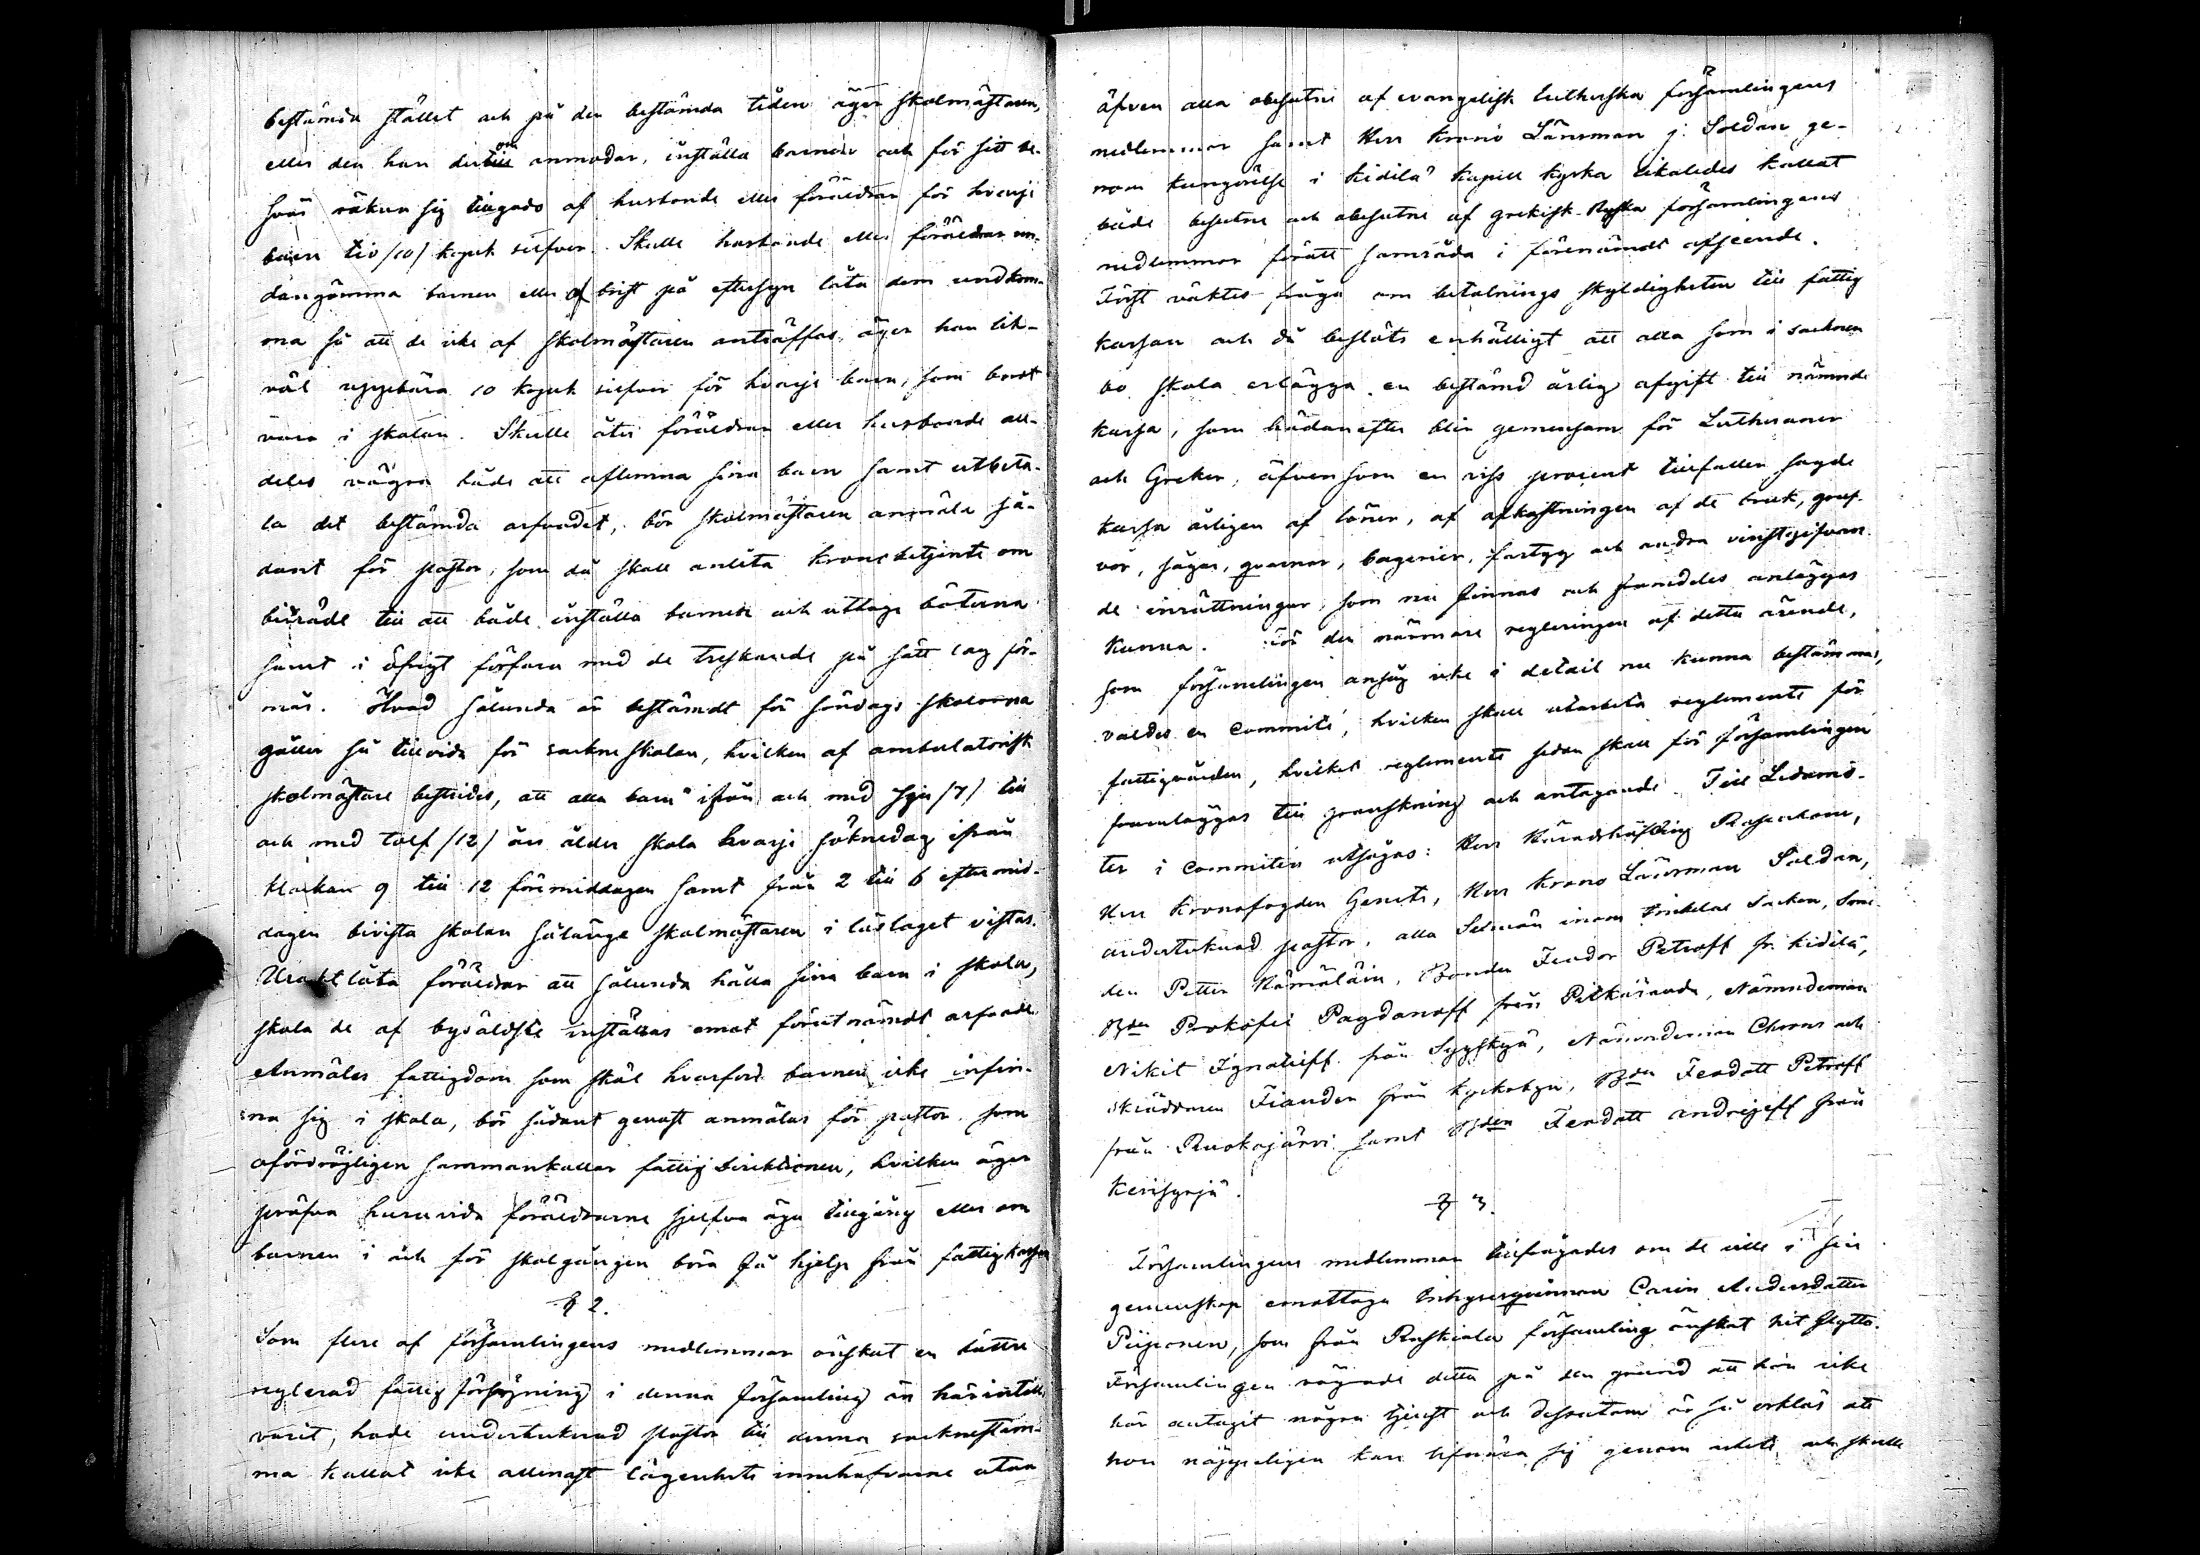 bestämda stället och på den bestämda tiden äger skolmästaren,
eller den han dertill om anmodar, inställa barnen och för sitt be-
svär räkna sig tillgodo af husbonde eller föräldrar för hvarje
barn tio /10/ kopek silfver. Skulle husbonde eller föräldrar un-
dangömma barnen eller af brist på eftersyn låta dem undkom-
ma så att de icke af skolmästaren anträffas, äger han lik-
väl uppebära 10 kopek silfver för hvarje barn, som bordt
vara i skolan. Skulle åter föräldrar eller husbonde all-
deles vägra både att aflemna sina barn samt utbeta-
la det bestämda arfvodet, bör skolmästaren anmäla så-
dant för pastor, som då skall anlita kronobetjente om
biträde till att både inställa barnen och uttaga böterna
samt i öfrigt förfara med de tredskande på sätt lag för-
mår. Hvad sålunda är bestämdt för söndags skolorna
gäller så tillvida för sockneskolan, hvilken af ambulatorisk
skolmästare bestrides, att alla barn ifrån och med sju /7/ till
och med tolf /12/ års ålder skola hvarje söknedag ifrån
klockan 9 till 12 förmiddagen samt från 2 till 6 eftermid-
dagen bivista skolan sålänge skolmästaren i läslaget vistas.
Uraktlåta föräldrar att sålunda hålla sina barn i skola,
skola de af byåldste inställas emot förutnämdt arfvode.
Anmäles fattigdom som skäl hvarföre barnen icke infin-
na sig i skola, bör sådant genast anmälas för pastor som
ofördröjligen sammankallar fattig direktionen, hvilken äger
pröfva huruvida föräldrarne sjelfva äga tillgång eller om
barnen i och för skolgången böra få hjelp från fattigkassan
§ 2.
Som flere af församlingens medlemmar önskat en bättre
reglerad fattig försörjning i denna församling än härintills
varit, hade undertecknad pastor till denna socknestäm-
ma kallat icke allenast lägenhets innehafvarne utan
äfven alla obesutne af evangelisk Lutherska församlingens
medlemmar samt Herr Krono Länsman J. Soldan ge-
nom kungörelse i Kidilä kapell kyrka likaledes kallat
både besutne och obesutne af grekisk-Ryska församlingens
medlemmar föratt samråda i förenämdt afseende.
Först väcktes fråga om betalnings skyldigheten till fattig
kassan och då beslöts enhälligt att alla som i socknen
bo skola erlägga en bestämd årlig afgift till nämnde
kassa, som hädanefter blir gemensam för Lutheraner
och Greker, äfvensom en viss procent tillfaller sagde
kassa årligen af löner, af afkastningen af de bruk, gruf-
vor, sågar, qvarnar, bagerier, fartyg och andra vinstgifvan-
de inrättningar, som nu finnas och framdeles anläggas
kunna. För den närmare regleringen af detta ärende,
som församlingen ansåg icke i detail nu kunna bestämmas,
valdes en committé, hvilken skall utarbeta reglemente för
fattigvården, hvilket reglemente sedan skall för församlingen
framläggas till granskning och antagande. Till Ledamö-
ter i committén utsågos: Herr Häradshöfding Rosenbom,
Herr Kronofogden Genetz, Herr Krono Länsman Soldan,
undertecknad pastor, alla Sexmän inom Impilaks socken, Bon-
den Petter Hämäläin, Bonden Feodor Petroff fr. Kidilä,
Bden Prokofei Pagdanoff från Pitkäranda, Nämndeman
Nikit Ignatieff från Syskyä, Nämndeman Chorns och
Skräddaren Fiander från Kockabyn, Bden Feodott Petroff
från Ruokojärvi samt Bden Feodott Andrejeff från
Kerisyrjä.
§ 3.
Församlingens medlemmar tillfrågades om de ville i sin
gemenskap emottaga Inhysesqvinnan Carin Andersdotter
Piiponen, som från Ruskiala församling önskat hit flytta.
Församlingen vägrade detta på den grund att hon icke
här antagit någon tjenst och dessutom är så orklös att
hon näppeligen kan lifnära sig genom arbete och skulle